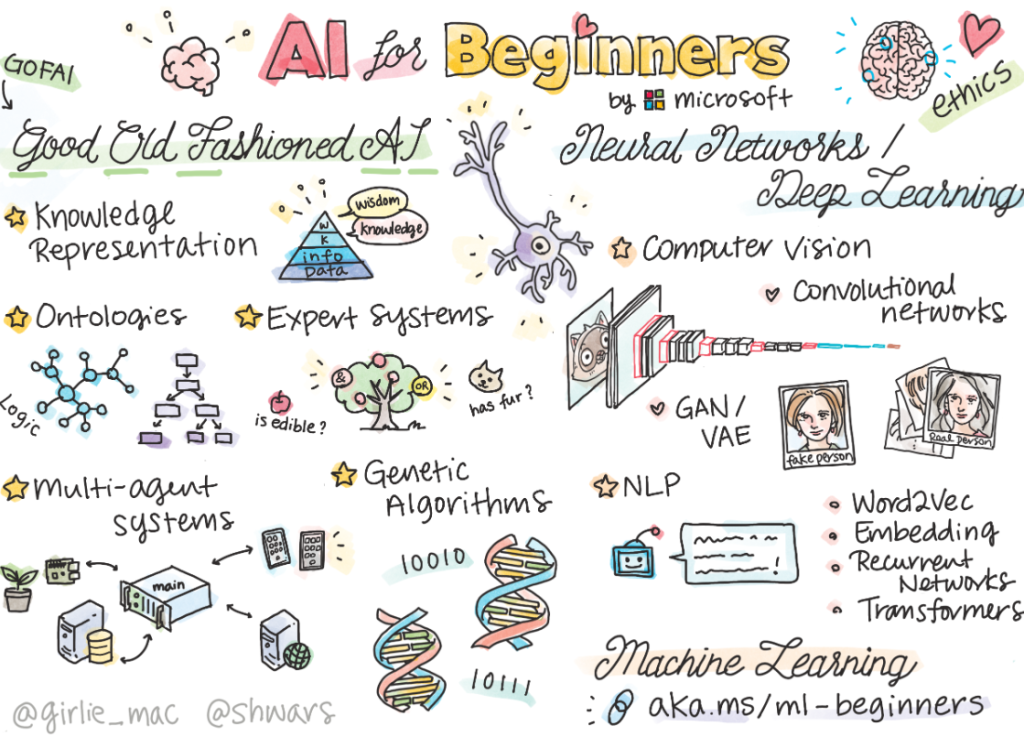 AI for Beginners
by microsoft
GOFAI
ethics
Good Old Fashioned AI
Knowledge
Representation
wisdom
knowledge
W
K
info
Data
Ontologies
Logic
Expert Systems
is edible?
&
OR
has fur?
Multi-agent
systems
main
Genetic
Algorithms
10010
10111
Neural Networks /
Deep Learning
Computer Vision
Convolutional
networks
GAN/
VAE
fake person
Real person
NLP
!
Word2Vec
Embedding
Recurrent
Networks
Transformers
Machine Learning
aka.ms/ml-beginners
@girlie_mac @shwars